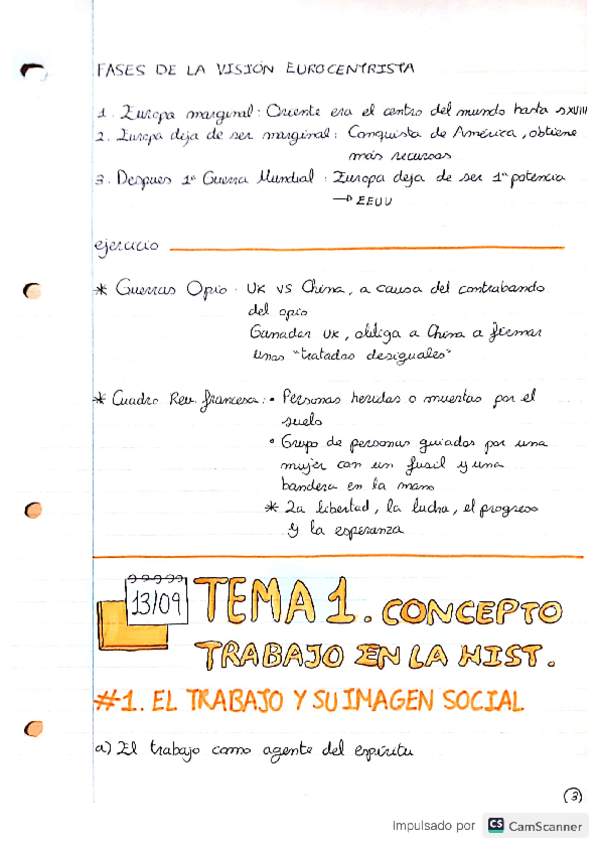 FASES DE LA VISIÓN EUROCENTRISTA
1. Europa marginal: Oriente era el centro del mundo hasta s.XVIII
2. Europa deja de ser marginal: Conquista de América, obtiene
más recursos
3. Despues 1ª Guerra Mundial: Europa deja de ser 1ª potencia
→ EEUU
ejercicio
* Guerras Opio. UK VS China, a causa del contrabando
del opio
Ganador UK, obliga a China a firmar
unos "tratados desiguales"
* Cuadro Rev. francesa: • Personas heridas o muertas por el
suelo
• Grupo de personas guiados por una
mujer con un fusil y una
bandera en la mano
* La libertad, la lucha, el progreso
y la esperanza
13/09
TEMA 1. CONCEPTO
TRABAJO EN LA HIST.
#1. EL TRABAJO Y SU IMAGEN SOCIAL
a) El trabajo como agente del espíritu
3
Impulsado por CS CamScanner